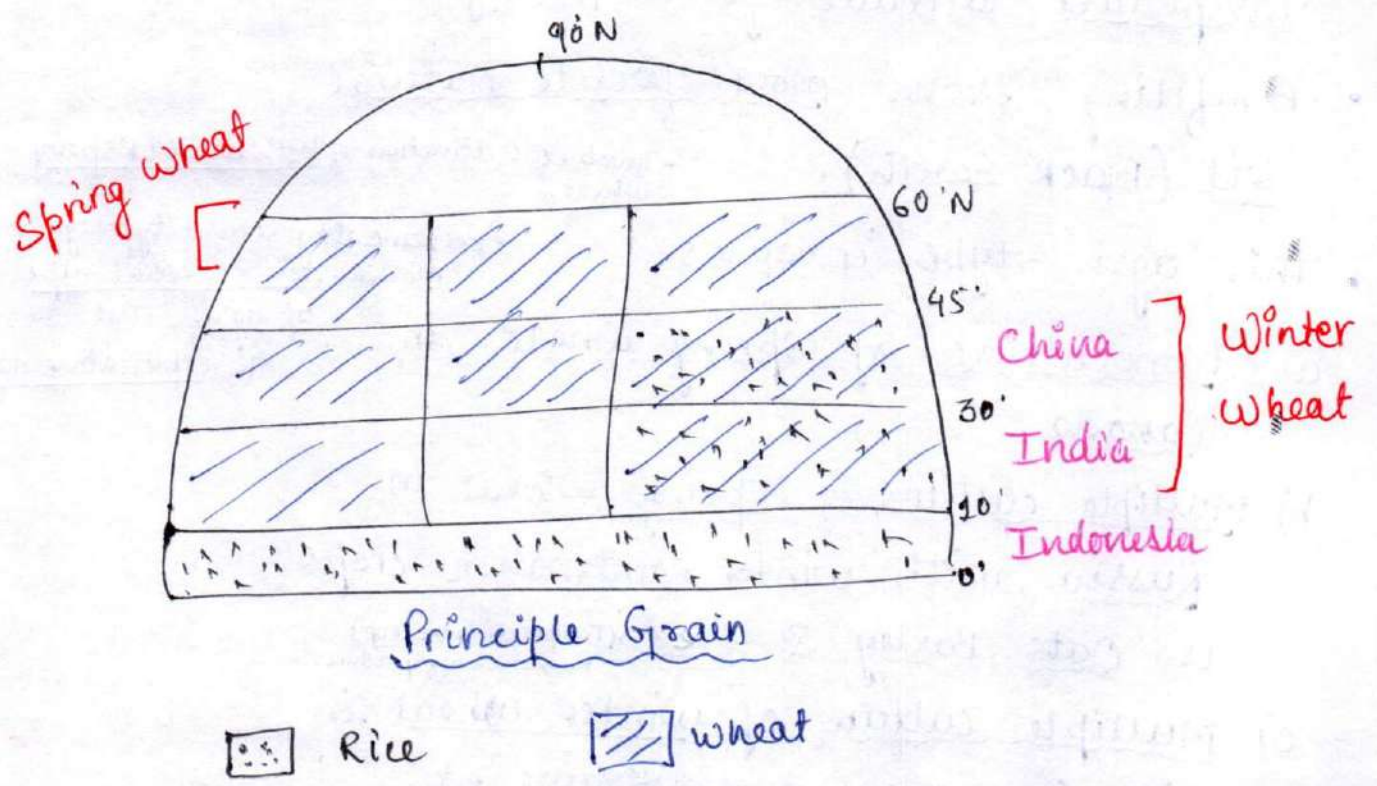 90°N
Spring wheat
60°N
45°
China
Winter
wheat
30°
India
10
Indonesia
0°
Principle Grain
Rice
wheat